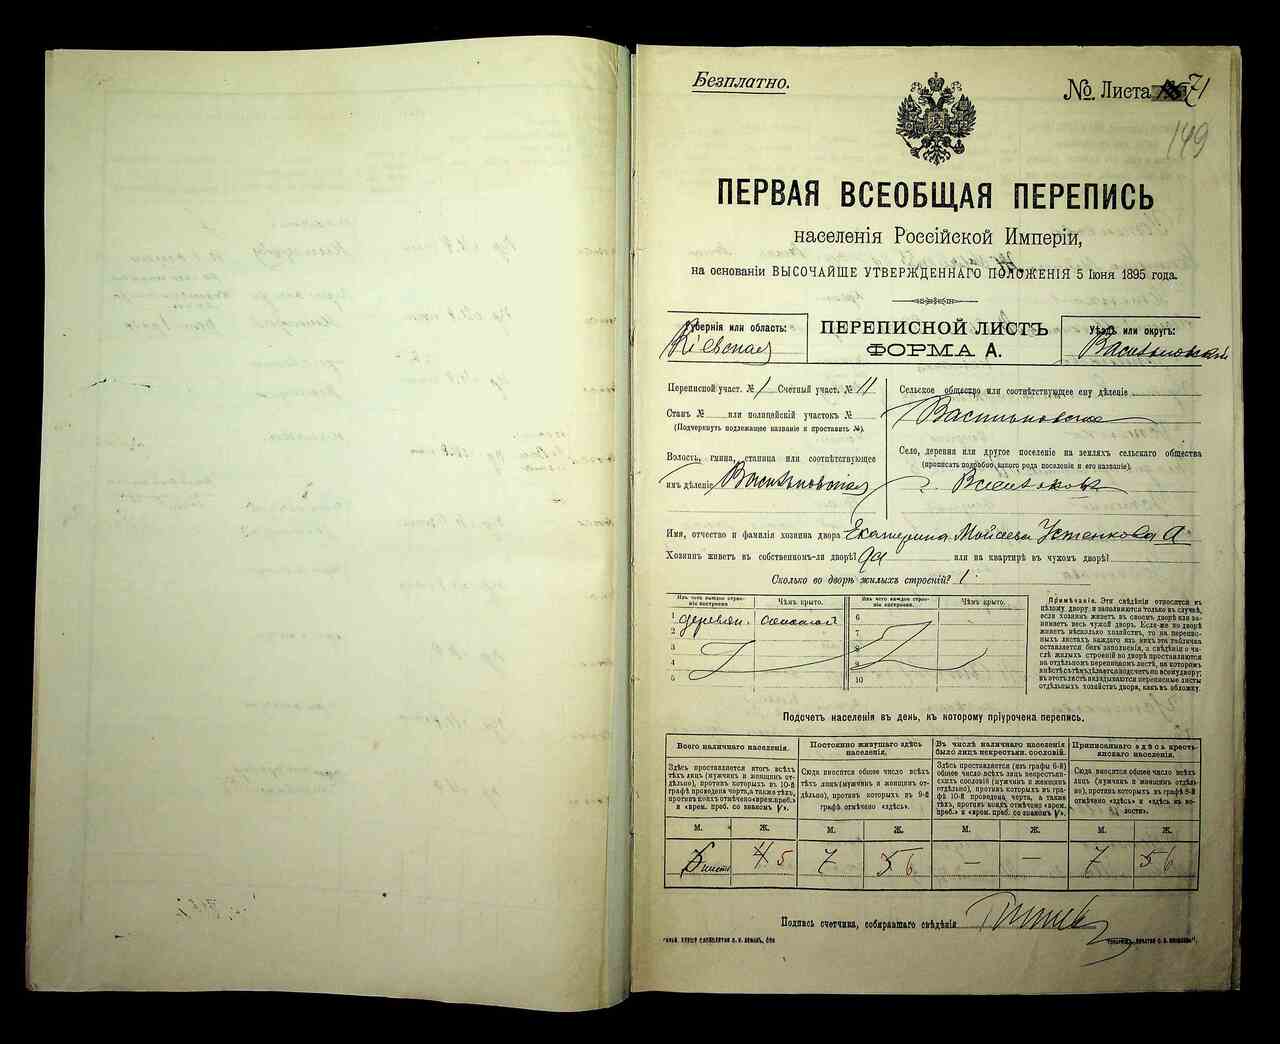 Безплатно.
№ Листа 71
149
ПЕРВАЯ ВСЕОБЩАЯ ПЕРЕПИСЬ
населенія Россійской Имперіи,
на основаніи ВЫСОЧАЙШЕ УТВЕРЖДЕННАГО ПОЛОЖЕНІЯ 5 Іюня 1895 года.
Губернія или область:
Кіевская
ПЕРЕПИСНОЙ ЛИСТЪ
ФОРМА А.
Уѣздъ или округъ:
Васильковскій
Переписной участ. № 1 Счетный участ. № 11
Станъ № или полицейскій участокъ №
(Подчеркнуть подлежащее названіе и проставить №).
Волость, гмина, станица или соотвѣтствующее
имъ дѣленіе Васильковская
Сельское общество или соотвѣтствующее ему дѣленіе
Васильковское
Село, деревня или другое поселеніе на земляхъ сельскаго общества
(прописать подробно какого рода поселеніе и его названіе).
г. Васильковъ
Имя, отчество и фамилія хозяина двора Екатерина Мойсеева Устенкова
Хозяинъ живетъ въ собственномъ-ли дворѣ? да или на квартирѣ въ чужомъ дворѣ?
Сколько во дворѣ жилыхъ строеній? 1
Изъ чего каждое строеніе построено. Чѣмъ крыто. Изъ чего каждое строеніе построено. Чѣмъ крыто.
1 деревян. соломой 6
2 7
3 8
4 9
5 10
Примѣчаніе. Эти свѣдѣнія относятся къ
цѣлому двору, и заполняются только въ случаѣ,
если хозяинъ живетъ въ своемъ дворѣ или занимаетъ
весь чужой дворъ. Если-же во дворѣ
живетъ нѣсколько хозяйствъ, то на переписныхъ
листахъ каждаго изъ нихъ эта табличка
оставляется безъ заполненія, а свѣдѣнія о числѣ
жилыхъ строеній во дворѣ проставляются
на отдѣльномъ переписномъ листѣ, на которомъ
вмѣстѣ съ тѣмъ дѣлается подсчетъ по всему двору;
въ этотъ листъ вкладываются переписные листы
отдѣльныхъ хозяйствъ двора, какъ въ обложку.
Подсчетъ населенія въ день, къ которому пріурочена перепись.
Всего наличнаго населенія.
Здѣсь проставляется итогъ всѣхъ
тѣхъ лицъ (мужчинъ и женщинъ отдѣльно),
противъ которыхъ въ 10-й
графѣ проведена черта, а также тѣхъ,
противъ коихъ отмѣчено «врем. преб.»
и «врем. преб. со знакомъ V».
Постоянно живущаго здѣсь
населенія.
Сюда вносится общее число всѣхъ
тѣхъ лицъ (мужчинъ и женщинъ отдѣльно),
противъ которыхъ въ 9-й
графѣ отмѣчено «здѣсь».
Въ числѣ наличнаго населенія
было лицъ некрестьян. сословій.
Здѣсь проставляется (изъ графы 6-й)
общее число всѣхъ лицъ некрестьянскихъ
сословій (мужчинъ и женщинъ
отдѣльно), противъ которыхъ въ графѣ
10-й проведена черта, а также
тѣхъ, противъ коихъ отмѣчено «врем.
преб.» и «врем. преб. со знакомъ V».
Приписаннаго здѣсь крестьянскаго
населенія.
Сюда вносится общее число всѣхъ
лицъ (мужчинъ и женщинъ отдѣльно),
противъ которыхъ въ графѣ 8-й
отмѣчено «здѣсь» и «здѣсь въ волости».
М. Ж. М. Ж. М. Ж. М. Ж.
4 5 7 5 6 — — 7 5 6
Подпись счетчика, собиравшаго свѣдѣнія